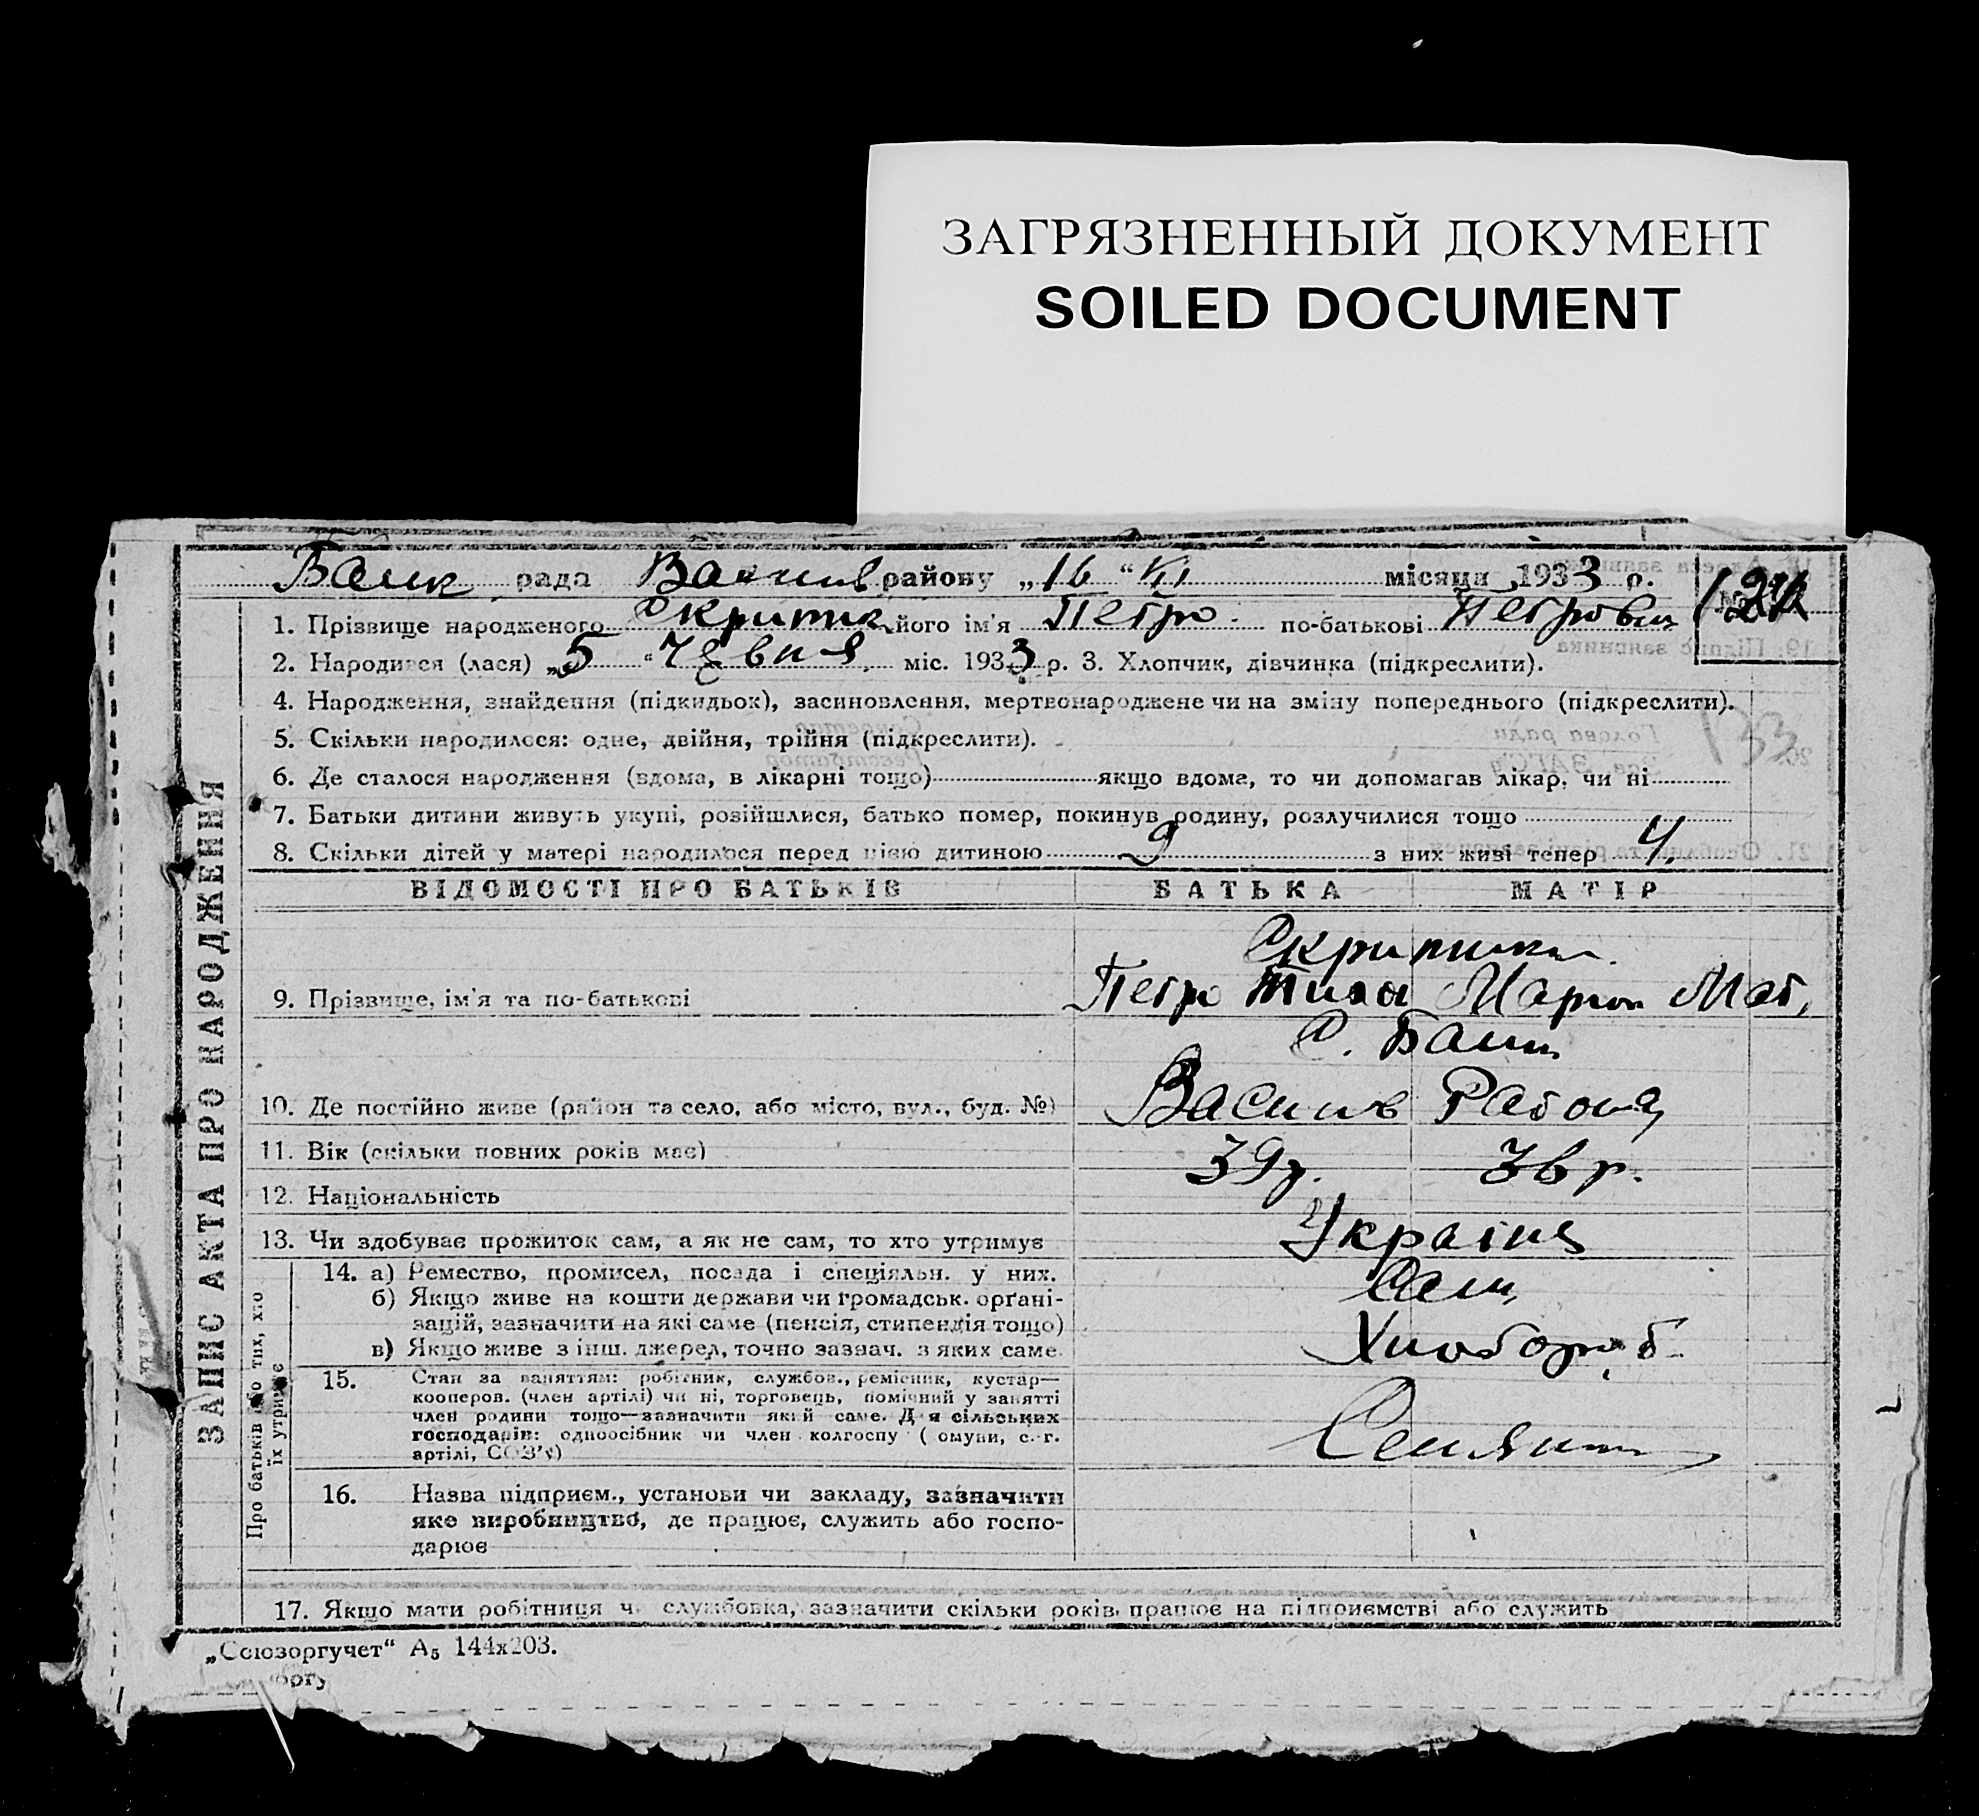 ЗАГРЯЗНЕННЫЙ ДОКУМЕНТ
SOILED DOCUMENT
рада району „16 “ VI місяця 1933 р.
1. Прізвище народженого його ім'я Петро по-батькові Петрович
2. Народився (лася) „5 “ Червня міс. 1933 р. 3. Хлопчик, дівчинка (підкреслити).
4. Народження, знайдення (підкидьок), засиновлення, мертвонароджене чи на зміну попереднього (підкреслити).
133
5. Скільки народилося: одне, двійня, трійня (підкреслити).
6. Де сталося народження (вдома, в лікарні тощо) якщо вдома, то чи допомагав лікар, чи ні
7. Батьки дитини живуть укупі, розійшлися, батько помер, покинув родину, розлучилися тощо
8. Скільки дітей у матері народилося перед цією дитиною 9 з них живі тепер 4.
ЗАПИС АКТА ПРО НАРОДЖЕННЯ
ВІДОМОСТІ ПРО БАТЬКІВ БАТЬКА МАТІР
9. Прізвище, ім'я та по-батькові Петро Мат.
С.
10. Де постійно живе (район та село, або місто, вул., буд. №)
11. Вік (скільки повних років має) 39 р. 36 р.
12. Національність
Україн
13. Чи здобуває прожиток сам, а як не сам, то хто утримує
Про батьків або тих, хто їх утримує
14. а) Ремество, промисел, посада і спеціяльн. у них.
б) Якщо живе на кошти держави чи громадськ. орґані-
зацій, зазначити на які саме (пенсія, стипендія тощо)
в) Якщо живе з інш. джерел, точно зазнач. з яких саме
Хлібороб
15. Стан за заняттям: робітник, службов., ремісник, кустар—
кооперов. (член артілі) чи ні, торговець, помічний у занятті
член родини тощо—зазначити який саме. Для сільських
господарів: одноосібник чи член колгоспу (омуни, с.-г.
артілі, СОЗ'у)
Селянин
16. Назва підприєм., установи чи закладу, зазначити
яке виробництво, де працює, служить або госпо-
дарює
17. Якщо мати робітниця чи службовка, зазначити скільки років працює на підприємстві або служить
„Союзоргучет“ А5 144х203.